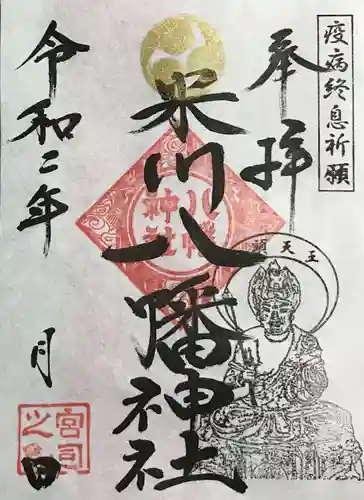 疫病終息祈願
奉拝
米川八幡神社
八幡
神社
牛頭天王
令和二年
月
日
宮司
之